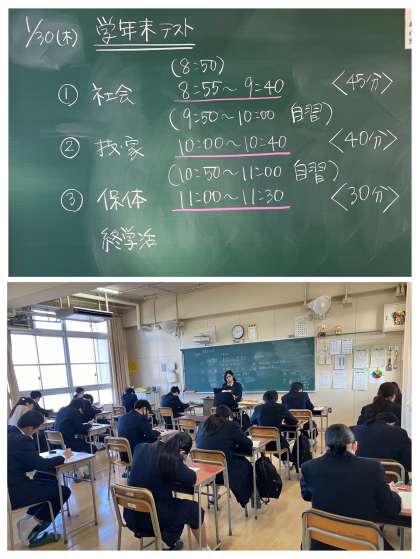 1/30(木) 学年末テスト
(8:50)
① 社会 8:55～9:40 <45分>
(9:50～10:00 自習)
② 技・家 10:00～10:40 <40分>
(10:50～11:00 自習)
③ 保体 11:00～11:30 <30分>
終学活